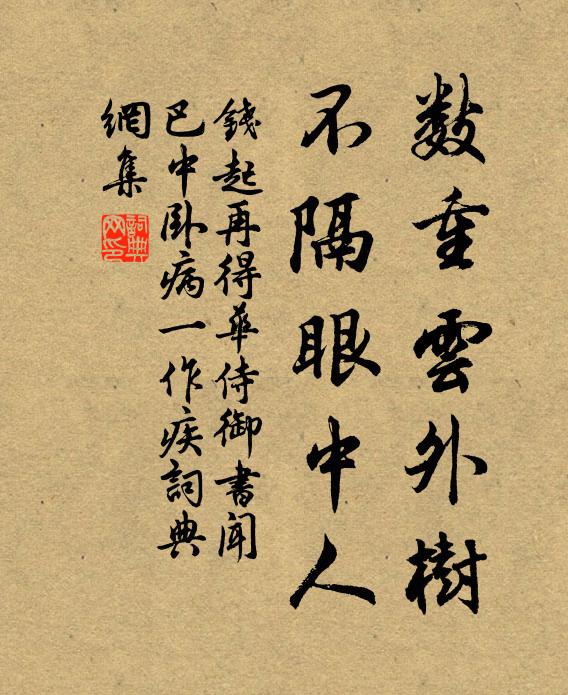 數重雲外樹
不隔眼中人
錢起再得華侍御書聞
巴中臥病一作疾詞典
網集
詞典网印